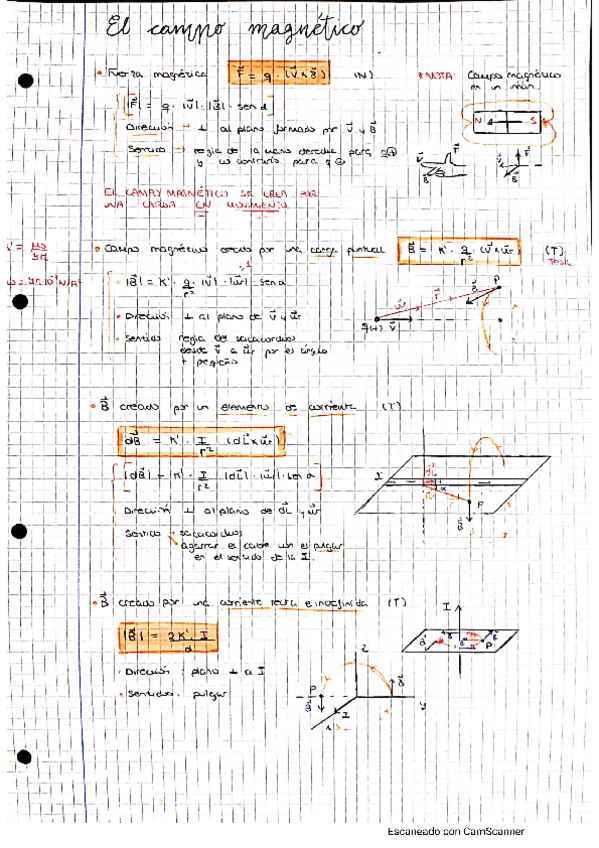 El campo magnético
• Fuerza magnética F⃗ = q · (v⃗ x B⃗) (N)
* NOTA: Campo magnético en un imán.
|F⃗| = q · |v⃗| · |B⃗| · sen α
N S
Dirección → ⊥ al plano formado por v⃗ y B⃗
Sentido → regla de la mano derecha para q⊕
F⃗
v⃗
B⃗
F⃗
B⃗
EL CAMPO MAGNÉTICO SE CREA POR
UNA CARGA EN MOVIMIENTO
• Campo magnético creado por una carga puntual B⃗ = K' · q/r² · (v⃗ x u⃗r) (T)
Tesla
|B⃗| = K' · q/r² · |v⃗| · |u⃗r| · sen α
• Dirección ⊥ al plano de v⃗ y u⃗r
• Sentido regla del sacacorchos
desde v⃗ a u⃗r por el ángulo
+ pequeño
P
B⃗
r⃗
u⃗r
q(+) v⃗
• B⃗ creado por un elemento de corriente (T)
dB⃗ = K' · I/r² · (dL⃗ x u⃗r)
|dB⃗| = K' · I/r² · |dL⃗| · |u⃗r| · sen α
Dirección ⊥ al plano de dL⃗ y u⃗r
Sentido • sacacorchos
• agarrar el cable con el pulgar
en el sentido de la I.
I
dL⃗
α
P
B⃗
• B⃗ creado por una corriente recta e indefinida (T)
|B⃗| = 2K' · I/d
• Dirección: plano ⊥ a I
• Sentido: pulgar
I
P
z
P
I
y
x
Escaneado con CamScanner